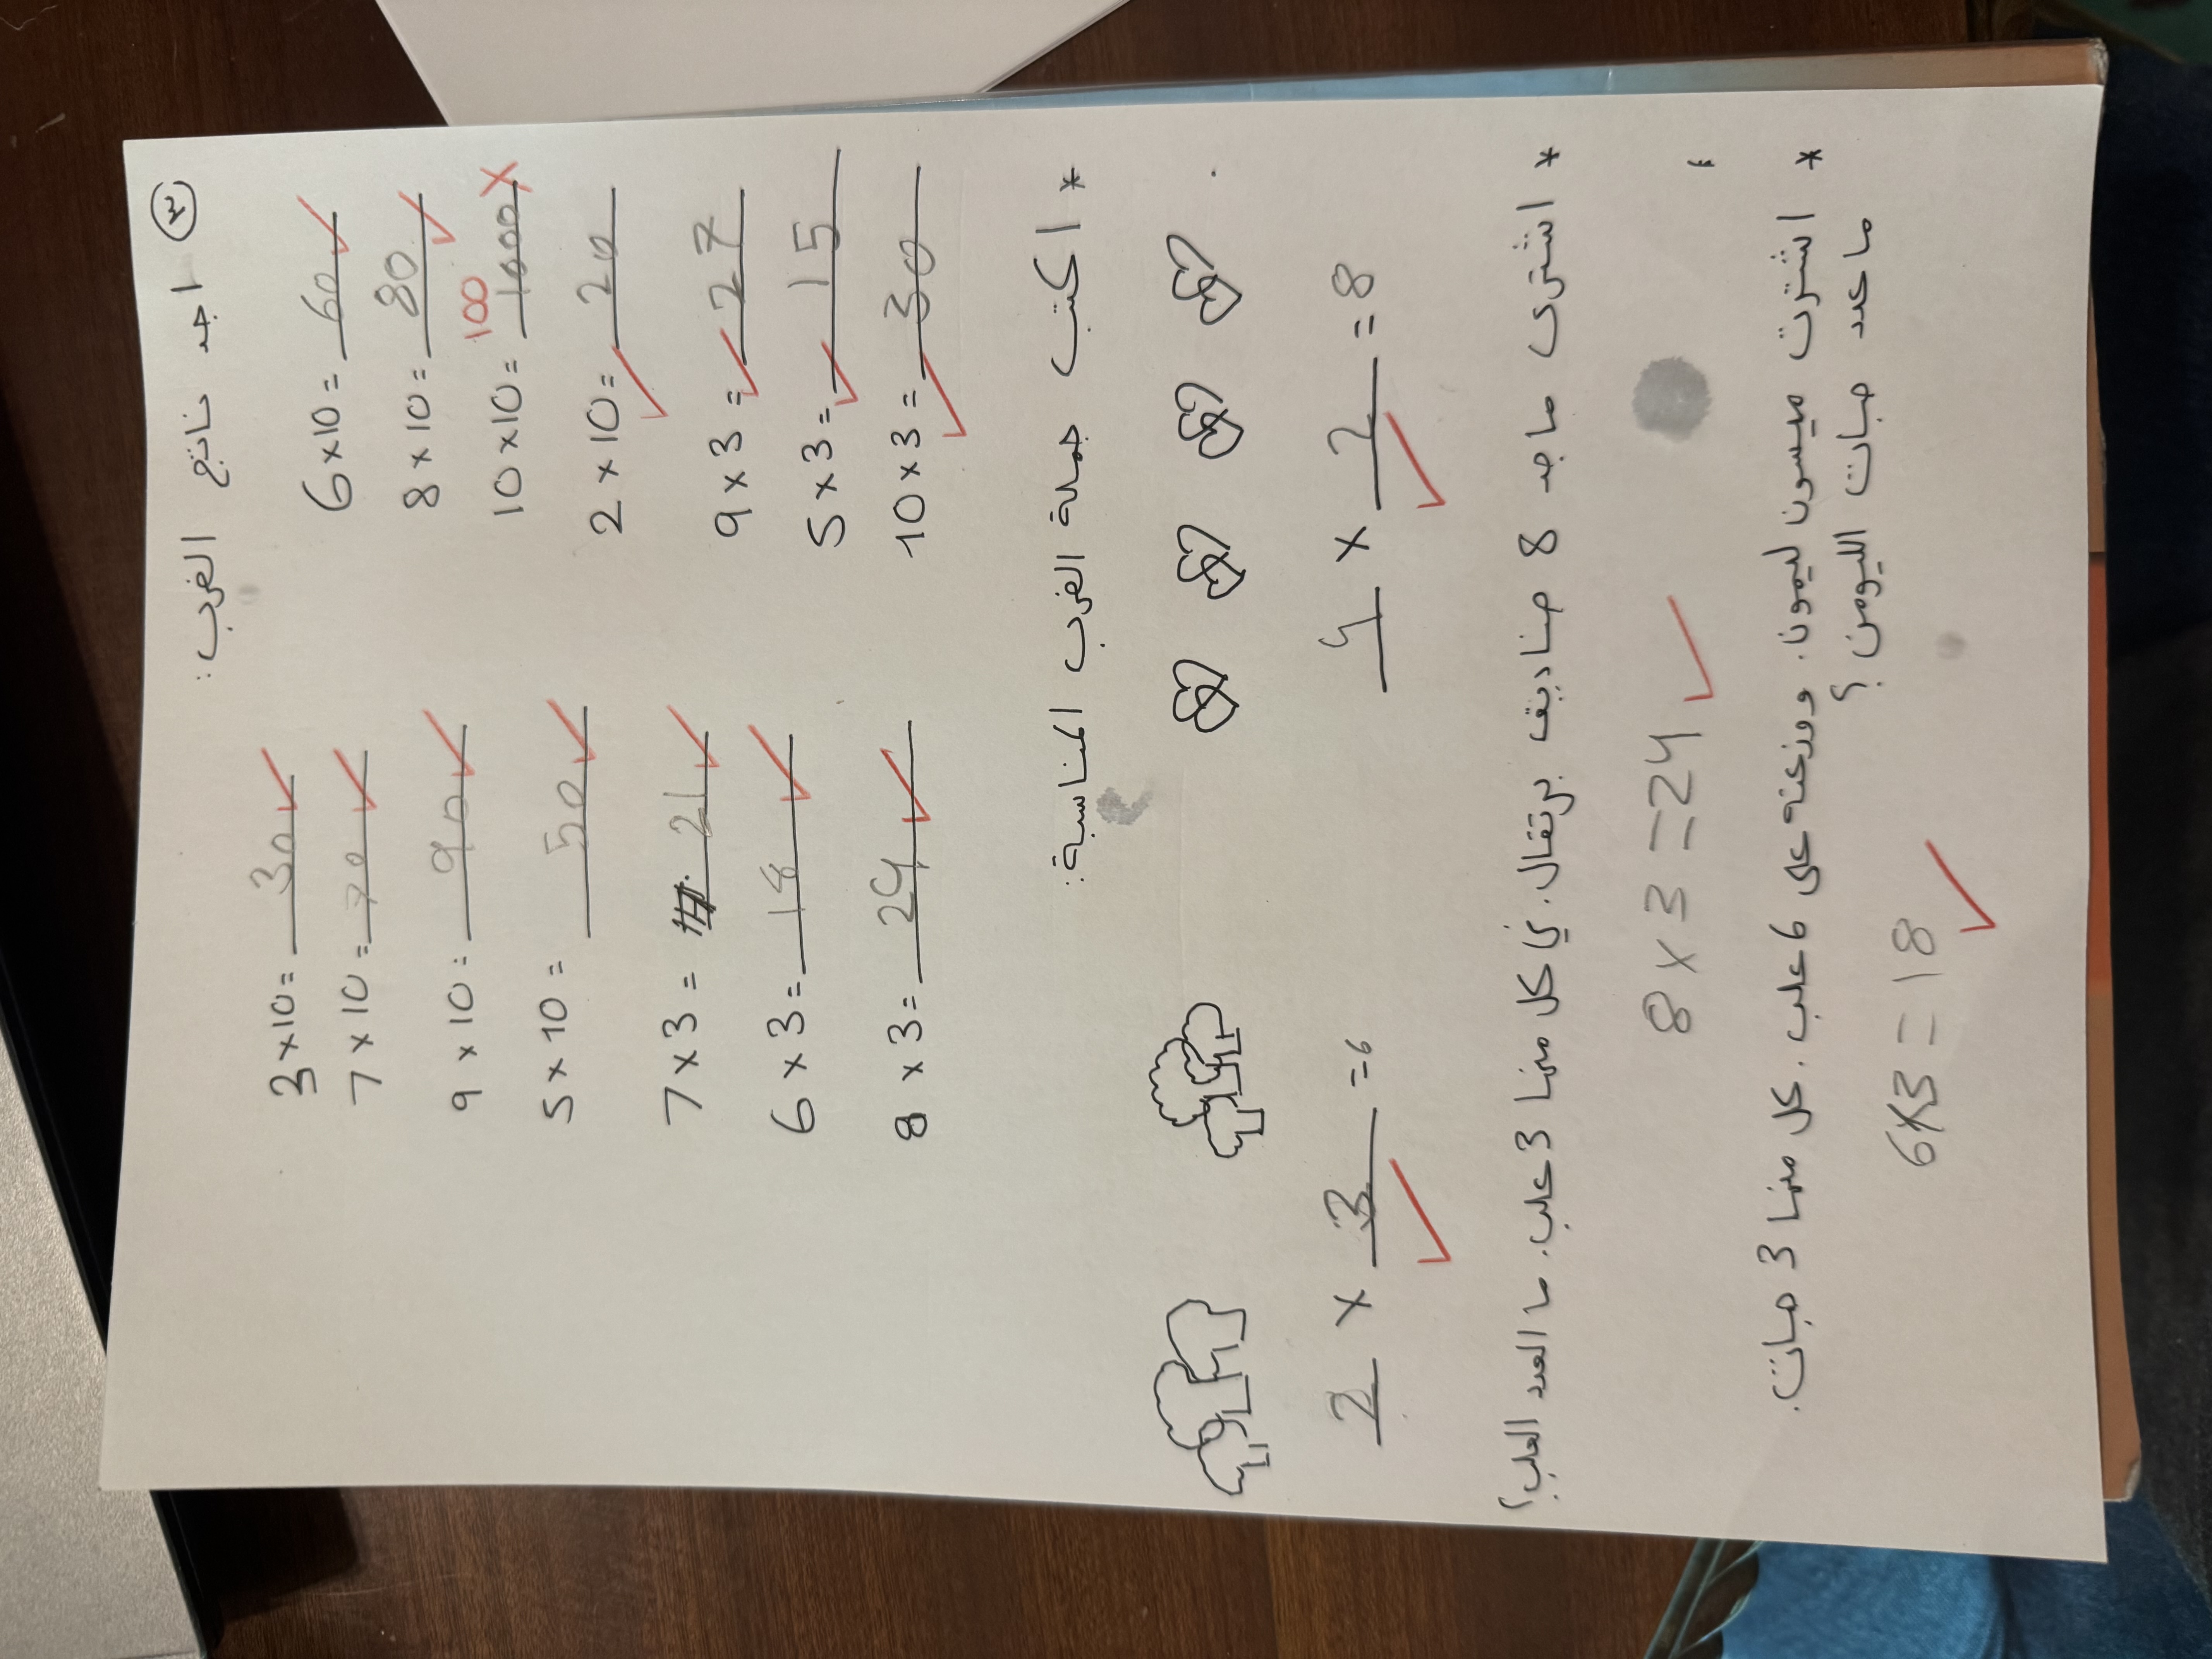 ③ اجد ناتج الضرب:
6 × 10 = 60 3 × 10 = 30
8 × 10 = 80 7 × 10 = 70
100
10 × 10 = 1000 X 9 × 10 = 90
2 × 10 = 20 5 × 10 = 50
9 × 3 = 27 7 × 3 = 21
5 × 3 = 15 6 × 3 = 18
10 × 3 = 30 8 × 3 = 24
* اكتب جملة الضرب المناسبة:
4 × 2 = 8 2 × 3 = 6
* اشترى ماجد 8 صناديق برتقال. في كل منها 3 علب. ما العدد العلب؟
8 × 3 = 24
* اشترت ميسون ليمونا. ووزعته على 6 علب. كل منها 3 حبات.
ما عدد حبات الليومن؟
6 × 3 = 18